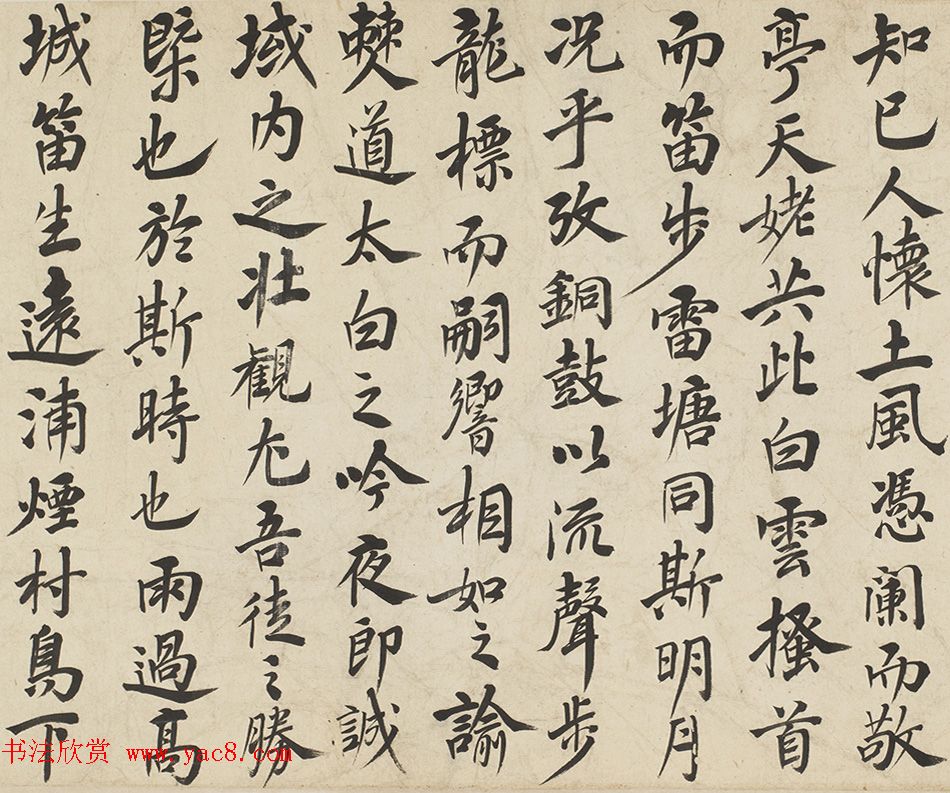 知己人懷土風憑闌而敬
亭天姥共此白雲搔首
而笛步雷塘同斯明月
況乎攷銅鼓以流聲步
龍標而嗣響相如之諭
僰道太白之吟夜郎誠
域内之壯觀尤吾徒之勝
槩也於斯時也雨過高
城笛生遠浦煙村鳥下
书法欣赏 www.yac8.com